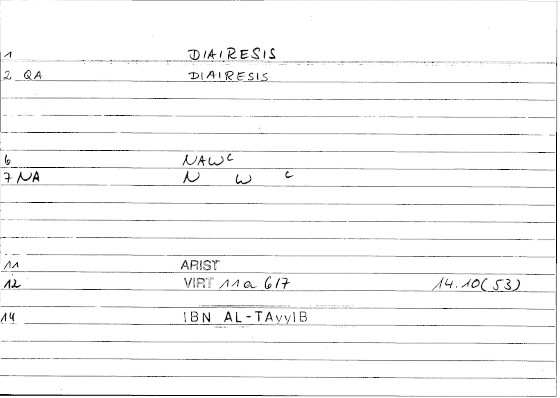 1 DIAIRESIS
2 QA DIAIRESIS
6 NAWC
7 NA N W C
11 ARIST
12 VIRT 11a 6/7 14.10(53)
14 IBN AL-TAyyIB